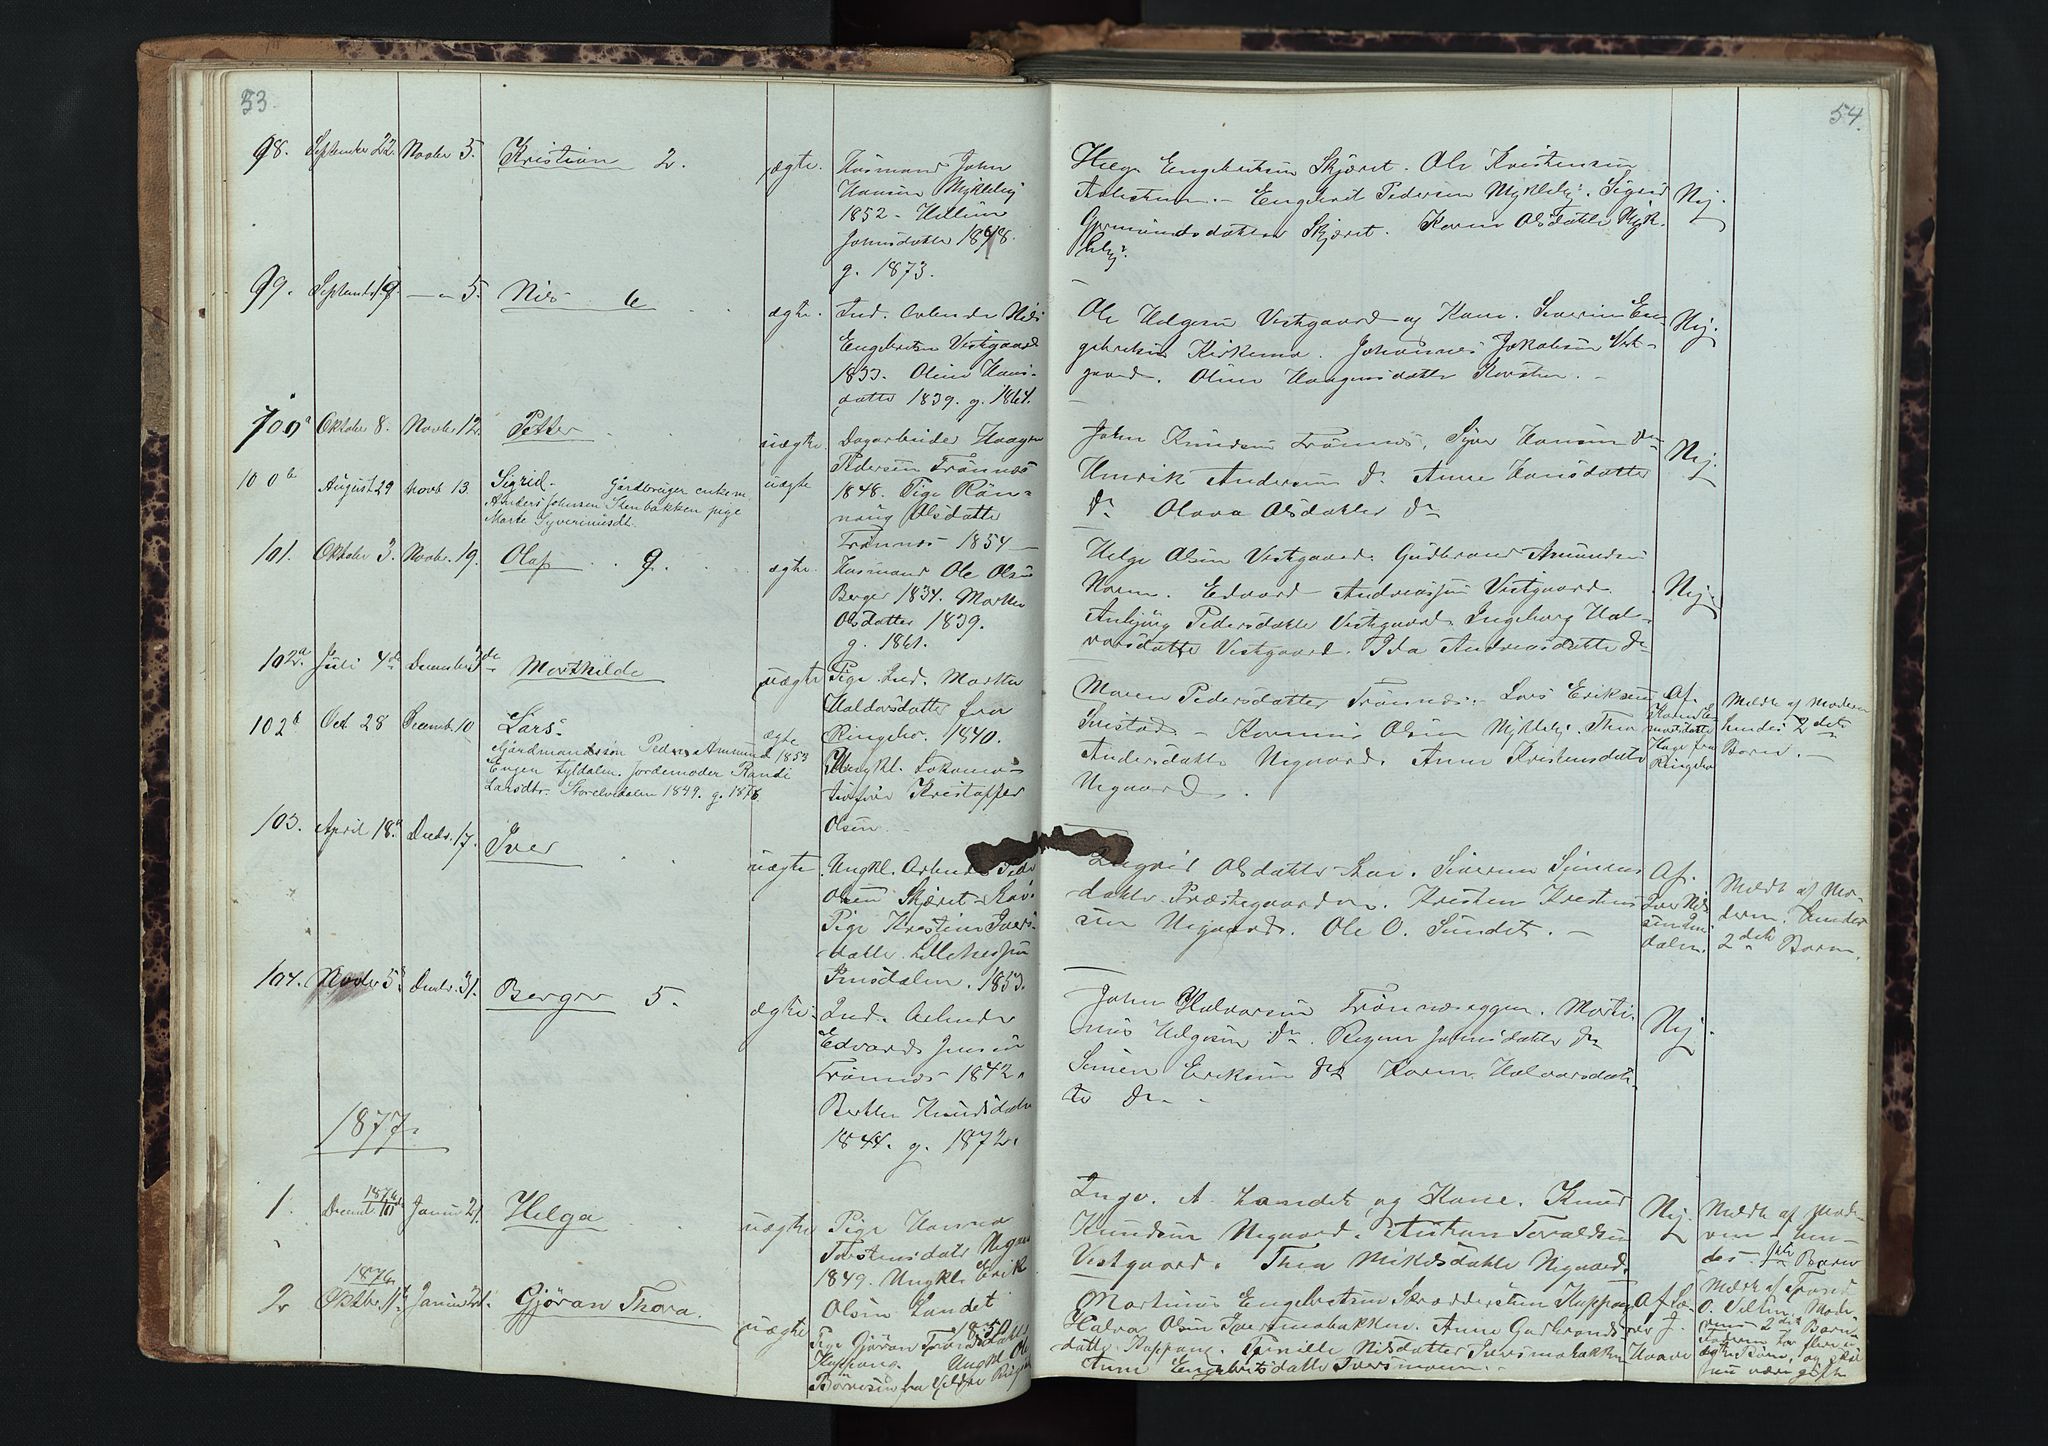 53.
98. September 22. Novbr 5. Kristian 2. ægte. Husmand John
Hansen Mykleby
1852 -
Johnsdatter 1848.
g. 1873.
99. Septemb. 19. — " 5. Nils 6 ægte. Ind. Arbeider Nils
Engebretsen Vestgaard
1833. Oline Hans-
datter 1839. g. 1864.
100a Oktober 8. Novbr. 12. Petter uægte Dagarbeider Haagen
Pedersen Trønnes
1848. Pige Røn-
naug Olsdatter
Trønnes 1854 —
100b August 29 Novb 13. Sigrid. Gårdbruger enkem.
Anders Johnsen Stenbakken pige
Marte Syverinusdt.
uægte
101. Oktober 3. Novbr. 19. Olaf 9. ægte. Husmand Ole Olsen
Berger 1834. Marthe
Olsdatter 1839.
g. 1861.
102a Juli 4de December 3de Marthilde uægte Pige Ind. Marthe
Haldorsdatter fra
Ringebo. 1840.
Ungkl. Lokomo-
tivfører Kristoffer
Olsen.
102b Oct 28 Decemb. 10 Lars. ægte
Gårdmandssøn Peder Ammund 1853
Engen Tyldalen. Jordemoder Randi
Larsdtr. 1849. g. 1876
103. April 18. Decbr. 17. Iver uægte Ungkl. Arbeider Peder
Olsen Skjæret
Pige Kristine Ivers-
datter Lillehessjøen
Imsdalen. 1853.
104. Novbr 5 Decbr. 31. Berger 5. ægte. Ind. Arbeider
Edvard Jensen
Trønnes 1842.
Berthe Knudsdatter
1844. g. 1872.
1877.
1. 1876 Decemb. Januar 21. Helga uægte Pige Hanna
Torstensdatter Negaard
1849. Ungkl. Erik
Olsen Landet
1850
2. 1876 Oktbr. 11 Januar 21. Gjøran Thora. uægte Pige Gjøran
Koppang. Ungkl Ole
54.
Helge Engebretsen Skjæret. Ole Kristensen
Engebret Pedersen Mykleby. Sigrid
Gjermundsdatter Skjæret. Karen Olsdatter Myk-
leby.
Nej.
Ole Helgesen Vestgaard og Kone. Severin En-
gebretsen Kirkemo. Johannes Jakobsen Vest-
gaard. Oline Haagensdatter
Nej.
John Knudsen Trønnes. Syver Hansen do
Henrik Andersen do Anne Hansdatter
do Olava Olsdatter do
Nej.
Helge Olsen Vestgaard. Gudbrand Amundsen
Edvard Andreassen Vestgaard.
Anbjørg Pedersdatter Vestgaard. Ingeborg Hal-
vorsdatter Vestgaard. Ida Andreasdatter do
Nej.
Maren Pedersdatter Trønnes. Lars Eriksen
Karinus Olsen Mykleby. Thea
Andersdatter Negaard. Anne Kristensdatter
Negaard.
Af
Hage fra
Ringebo
Meldt af Moderen
hendes 2det
Barn. —
Ingrid Olsdatter Severine Simens-
datter Præstegaarden. Kristen Kristen-
sen Negaard. Ole O. Sundet. —
Af.
Iver Nil-
sen Im-
dalen.
Meldt af Mo-
deren. hendes
2det Barn.
John Halvorsen Trønnæseggen. Marti-
nus Helgesen do. Regine Johnsdatter do
Simen Eriksen do Karen Halvorsdat-
ter do —
Nej.
Inge. A Landet og Kone. Knud
Knudsen Negaard. Torvaldsen
Vestgaard. Thea Mikelsdatter Negaard.
Nej.
Meldt af Mode-
ren hen-
des 1ste Barn
Martinus Engebretsen Skræddersteen Koppang
Halvor Olsen Iversmobakken. Anne Gudbrands-
datter Koppang. Pernille Nilsdatter Iversmobakken
Anne Engebretsdatter Iversmoen.
Meldt af
2det Barn